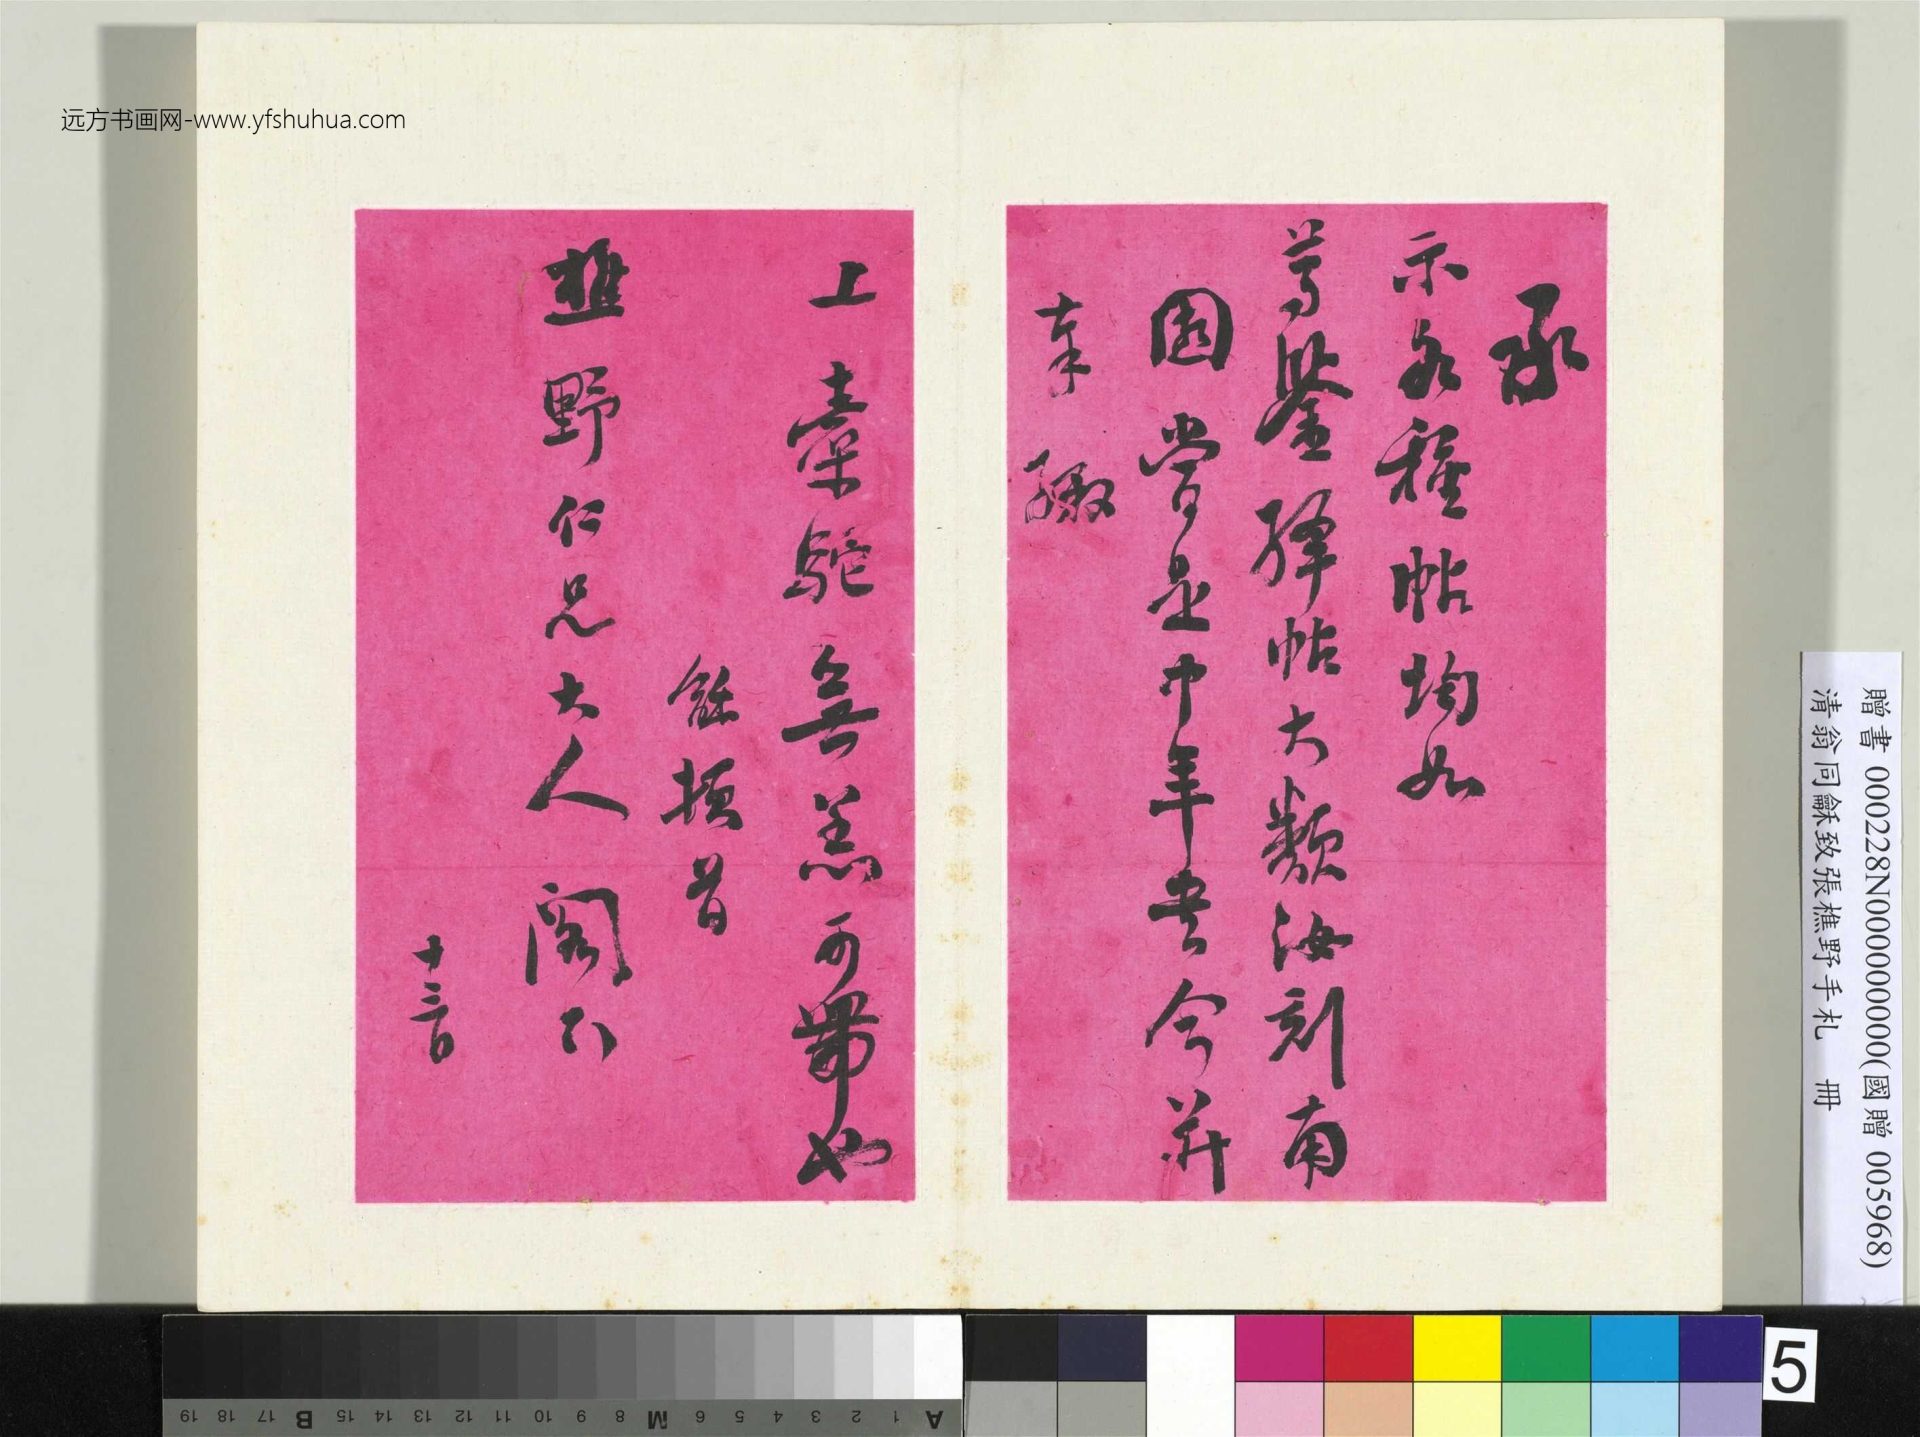 承
示各種帖均如
尊鑒絳帖大類汝刻南
園嘗是中年書今并
奉繳
上橐駝無恙可帶也
餘頓首
樵野仁兄大人閣下
十三日
远方书画网-www.yfshuhua.com
贈書 000228N000000000(國贈 005968)
清翁同龢致張樵野手札 冊
A 1 2 3 4 5 6 M 8 9 10 11 12 13 14 15 B 17 18 19
5